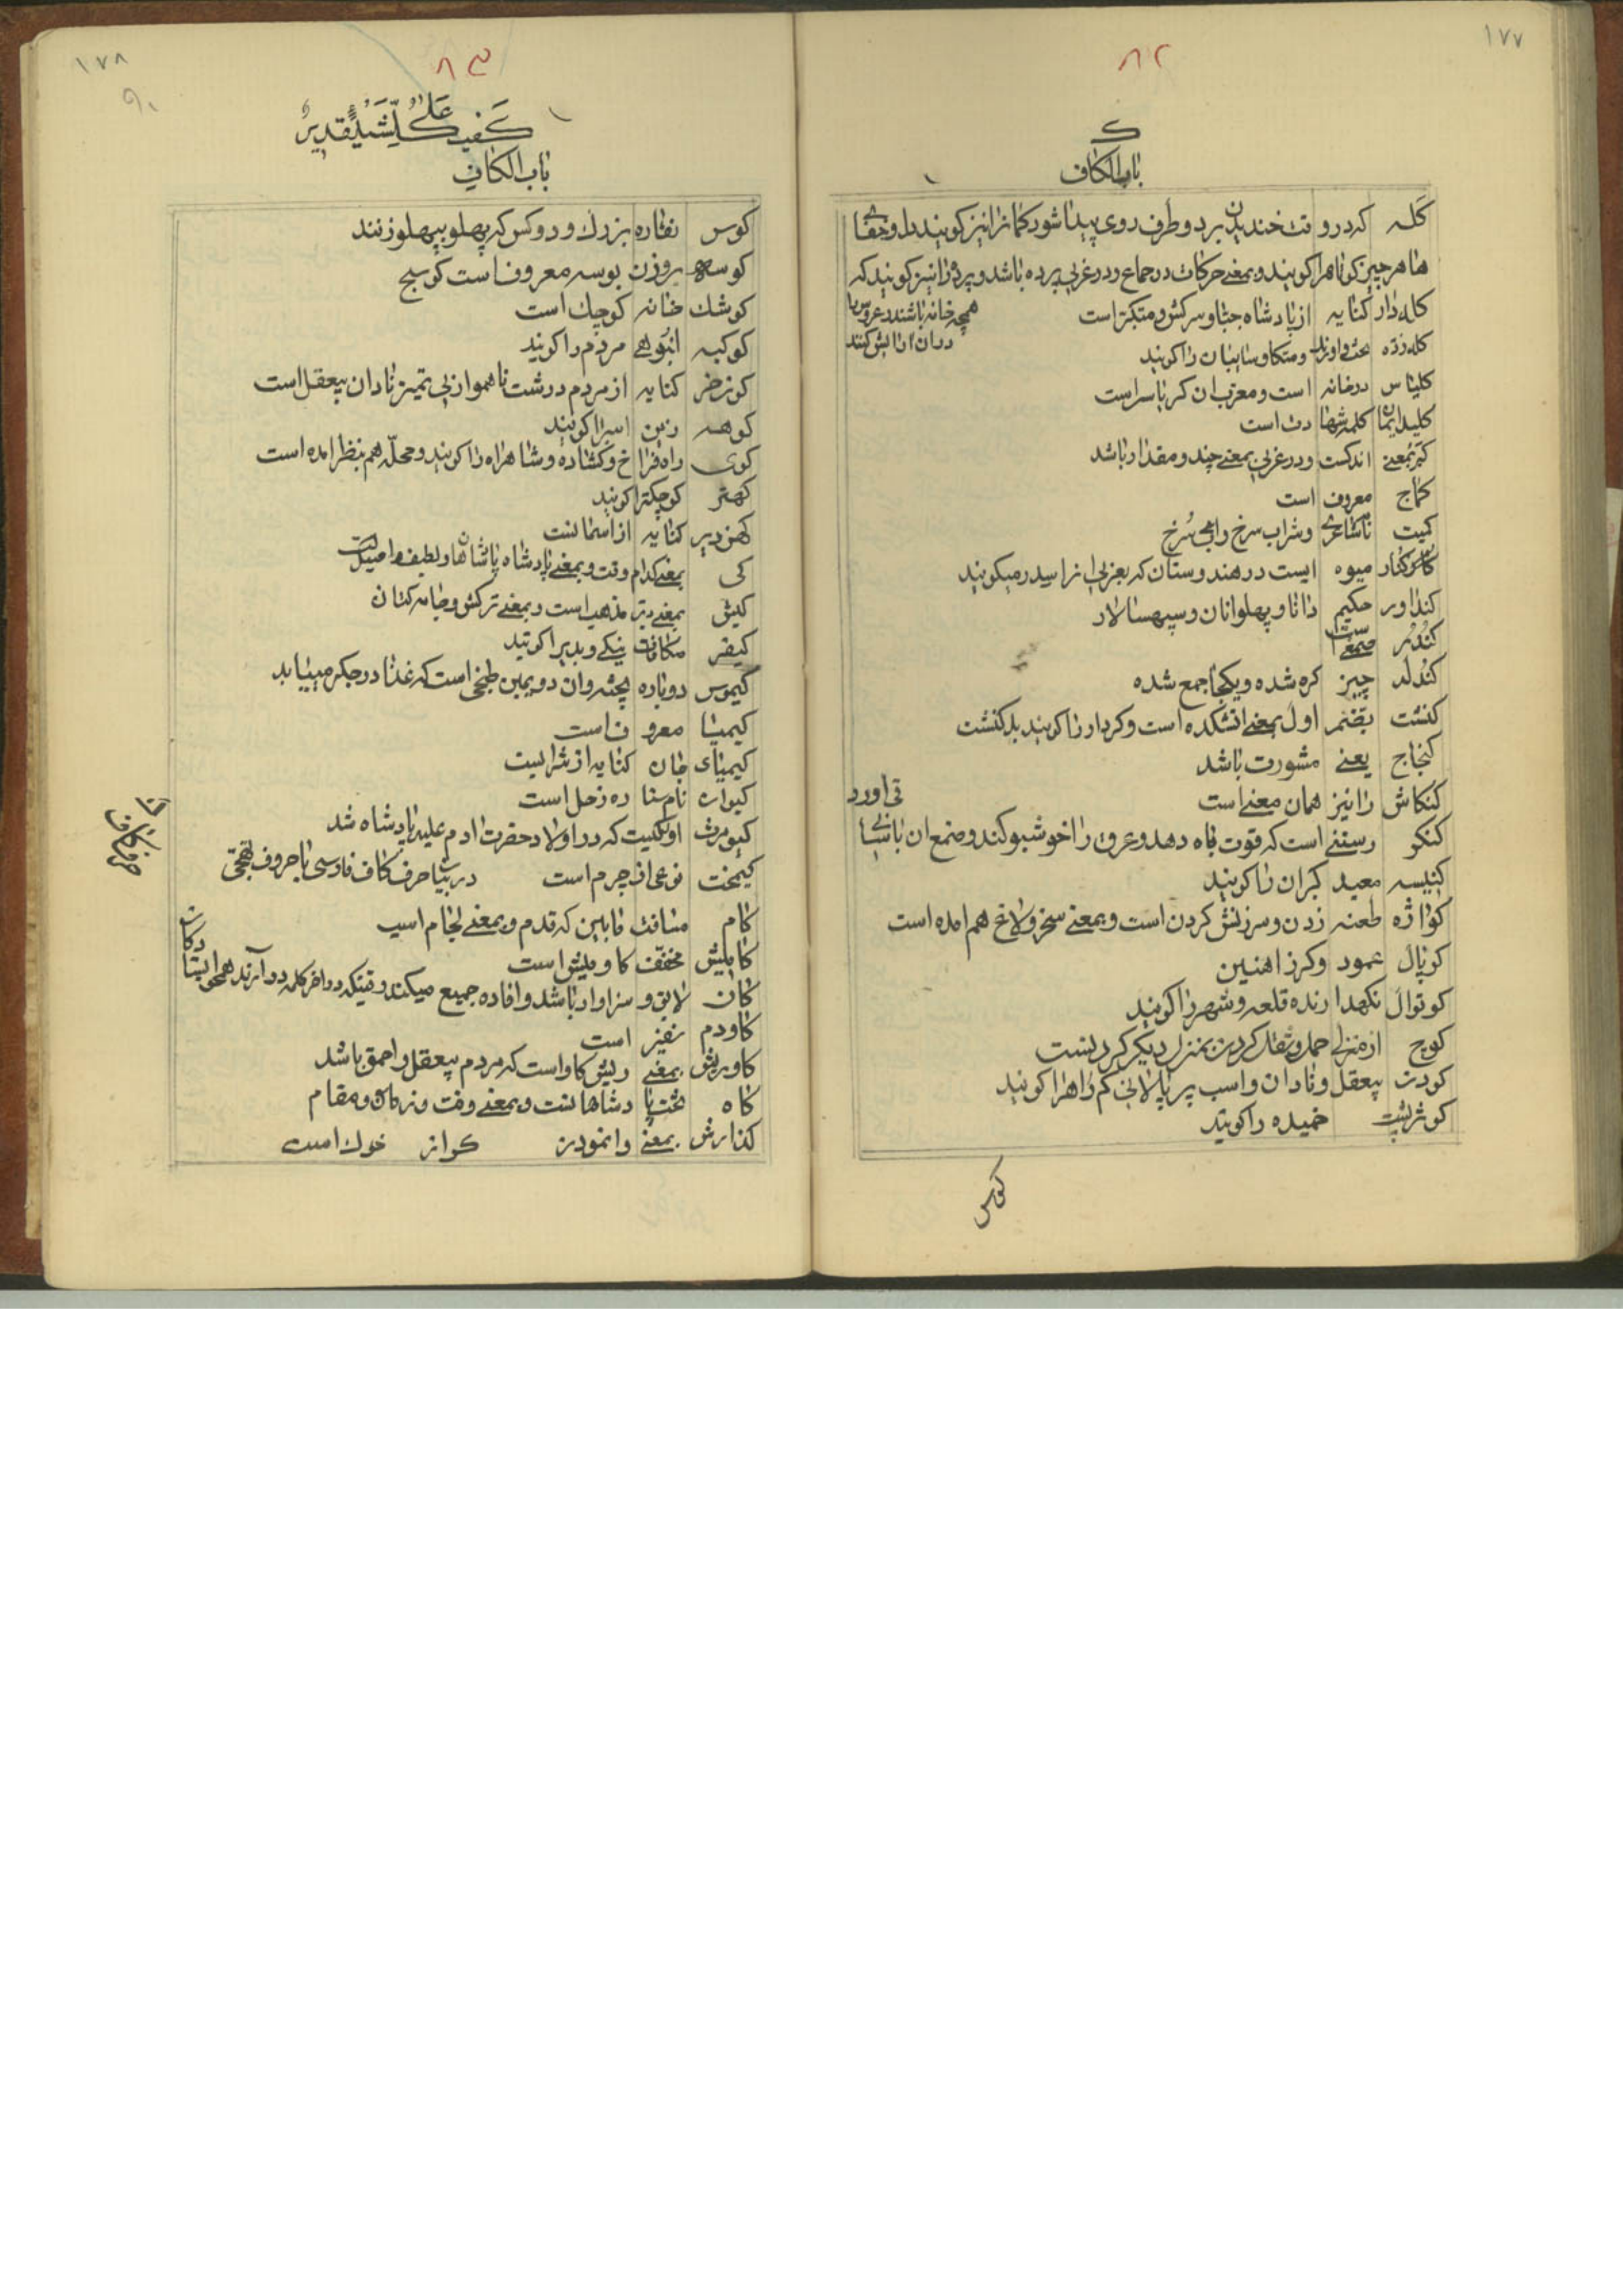 ۱۷۷
۸۲
ک
باب الکاف
کله که در وقت خندیدن بر دو طرف روی پیدا شود کمانرا نیز کویند و
هر چیز کوتاه را کویند و بمعنی حرکات در جماع و در عربی پرده باشد و پرده را نیز کویند که
همچه خانه باشد و عروس را
در ان ارایش کنند
کله دار کنایه از پادشاه جبار و سرکش و متکبر است
کله زده تخت و اورند و متکا و سایبان را کویند
کلیاس درخانه است و معرب ان کریاس است
کلید ایمان کلمه شهادت است
کم بمعنی اندکست و در عربی بمعنی چند و مقدار باشد
کماج معروف است
کمیت تا شاعری و شراب سرخ و اسب سرخ
کنار میوه ایست در هندوستان که بعربی انرا سدر میکویند
کنداور حکیم دانا و پهلوانان و سپهسالار
کندر صمغی است
کندله چیز کره شده و یکجا جمع شده
کنشت بضم اول بمعنی اتشکده است و کردار را کویند بد کنشت
کنجاج یعنی مشورت باشد
کنکاش را نیز همان معنی است
کنکر رستنی است که قوت باه دهد و عرق را خوشبو کند و صمغ ان باسانی
قی اورد
کنیسه معبد کبران را کویند
کواژه طعنه زدن و سرزنش کردن است و بمعنی سخر و لاغ هم امده است
کوپال عمود و کرز اهنین
کوتوال نکهدارنده قلعه و شهر را کویند
کوچ از منزلی حمل و نقل کردن بمنزل دیکر کردنست
کودن بیعقل و نادان و اسب پیر پالانی کم راه را کویند
کوژپشت خمیده را کویند
کوس
۱۷۸
۸۳
۹۰
علی کل شیء قدیر
باب الکاف
کوس نقاره بزرک و دو کس که پهلو بپهلو زنند
کوسه بروزن بوسه معروف است کوسج
کوشک خانه کوچک است
کوکبه انبوهی مردم را کویند
کون خر کنایه از مردم درشت ناهموار بی تمیز نادان بیعقل است
کوهه زین اسب را کویند
کوی راه فراخ و کشاده و شاهراه را کویند و محله هم بنظر امده است
کهتر کوچکتر را کویند
کهن دیر کنایه از اسمانست
کی بمعنی کدام وقت و بمعنی پادشاه پادشاهان و لطیف و اصیل است
کیش بمعنی دین مذهب است و بمعنی ترکش و جامه کتان
کیفر مکافات نیکی و بدی را کویند
کیموس دوباره پخته و ان دویمین طبخی است که غذا در جکر مییابد
کیمیا معروف است
کیمیای جان کنایه از شرابست
کیوان نام ستاره زحل است
کیومرث اول کسیت که در اولاد حضرت ادم علیه پادشاه شد
کیمخت نوعی از چرم است در بیان حرف کاف فارسی با حروف تهجی
کام مسافت مابین که قدم و بمعنی لجام اسب
کامیش مخفف کاومیش است
کان لایق و سزاوار باشد و افاده جمیع میکند وقتیکه در اخر کلمه در آرند همچو
کاودم نفیر است
کاوریش بمعنی ریش کاو است که مردم بیعقل و احمق باشد
کاه تخت پادشاهانست و بمعنی وقت و زمان و مقام
کذارش بمعنی وانمودن کراز خوک است